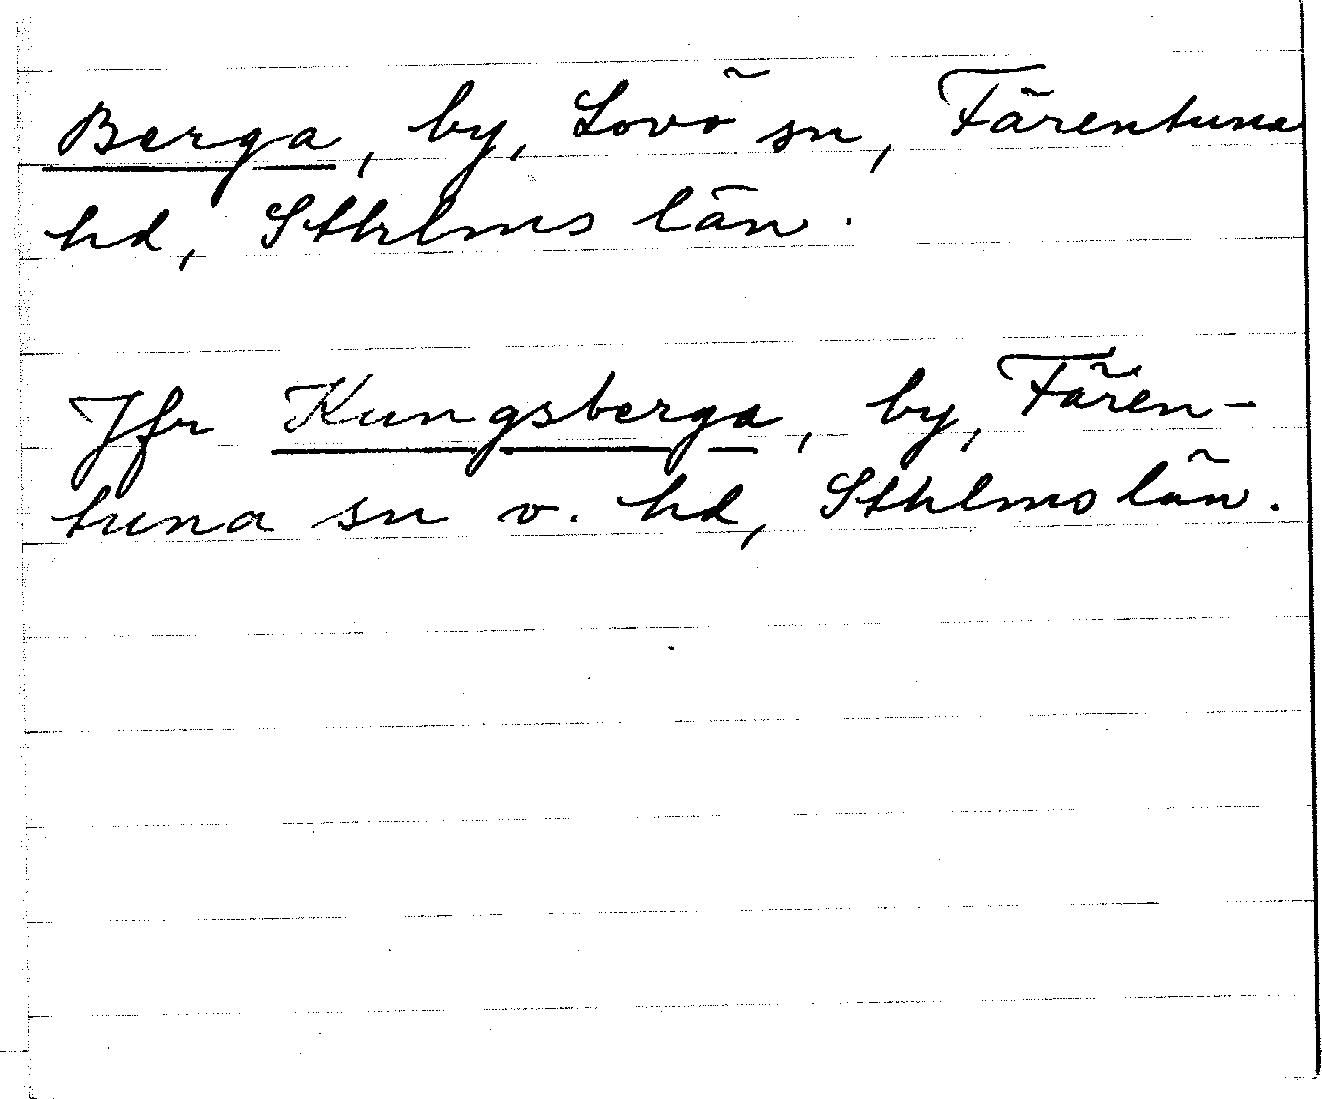 Berga, by, Lovö sn, Färentuna
hd, Sthlms län.
Jfr Kungsberga, by, Fären-
tuna sn o. hd, Sthlms län.